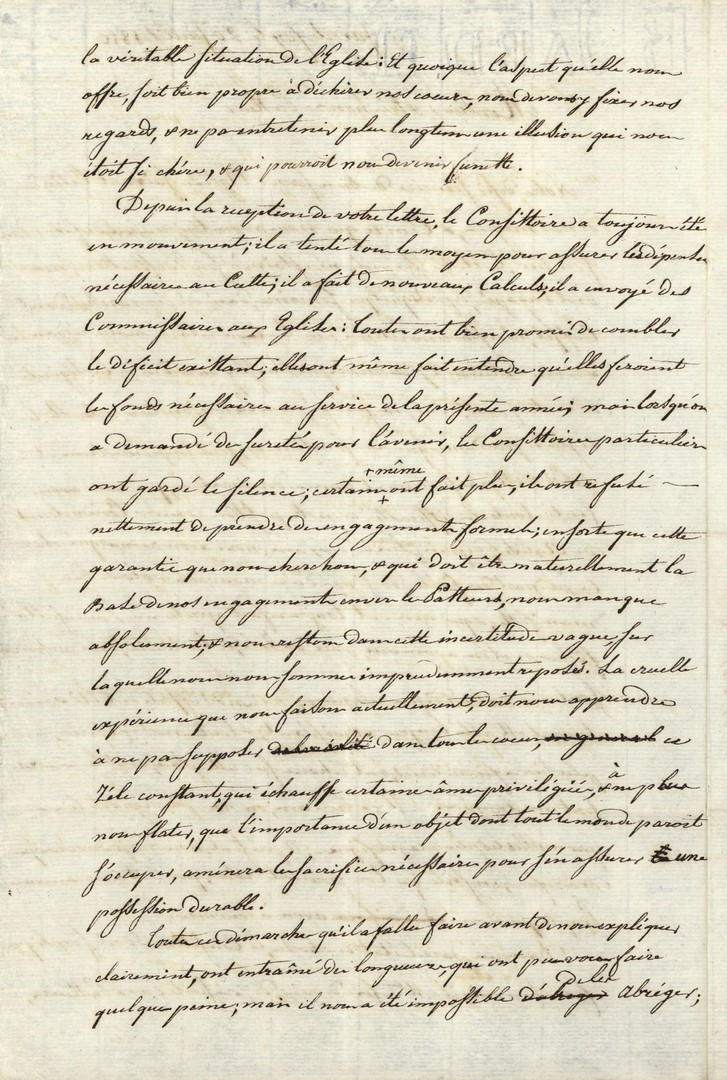 la véritable situation de l'Eglise: Et quoique l'aspect qu'elle nous
offre, soit bien propre à déchirer nos cœurs, nous devons y fixer nos
regards, & ne pas entretenir plus longtems une illusion qui nous
étoit si chére, & qui pourroit nous devenir funeste.
Depuis la reception de votre lettre, le Consistoire a toujours été
en mouvement; il a tenté tous les moyens pour assurer les dépenses
nécessaires au Culte; il a fait de nouveaux Calculs, il a envoyé des
Commissaires aux Eglises: toutes ont bien promis de combler
le déficit existant; elles ont même fait entendre qu'elles feroient
les fonds nécessaires au service de la présente année; mais lorsqu'on
a demandé des suretés pour l'avenir, les Consistoires particuliers
ont gardé le silence; certains + même + ont fait plus, ils ont refusé
nettement de prendre des engagements formels; ensorte que cette
garantie que nous cherchons, & qui doit être naturellement la
Base de nos engagements envers les Pasteurs, nous manque
absolument; & nous restons dans cette incertitude vague, sur
laquelle nous nous sommes imprudemment reposés. La cruelle
expérience que nous faisons actuellement, doit nous apprendre
à ne pas supposer dans tous les cœurs, ce
Zéle constant, qui échauffe certaines âmes priviligiées, & à ne plus
nous flater, que l'importance d'un objet dont tout le monde paroit
s'occuper, aménera les sacrifices nécessaires pour s'en assurer une
possession durable.
Toutes ces démarches qu'il a fallu faire avant de nous expliquer
clairement, ont entraîné des longueurs qui ont pu vous faire
quelque peine; mais il nous a été impossible de les Abréger;